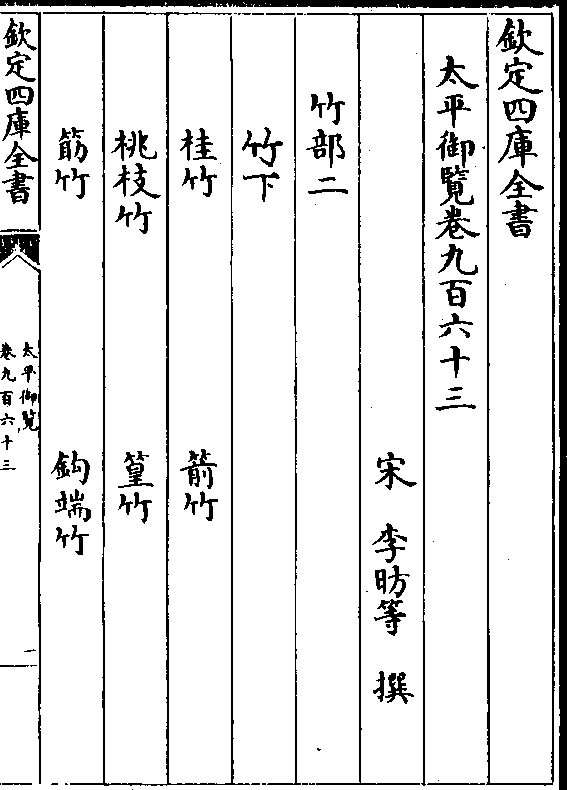 欽定四庫全書
太平御覽卷九百六十三
宋 李昉等 撰
竹部二
竹下
桂竹 箭竹
桃枝竹 篁竹
筋竹 鈎端竹
欽定四庫全書
太平御覽
卷九百六十三
一